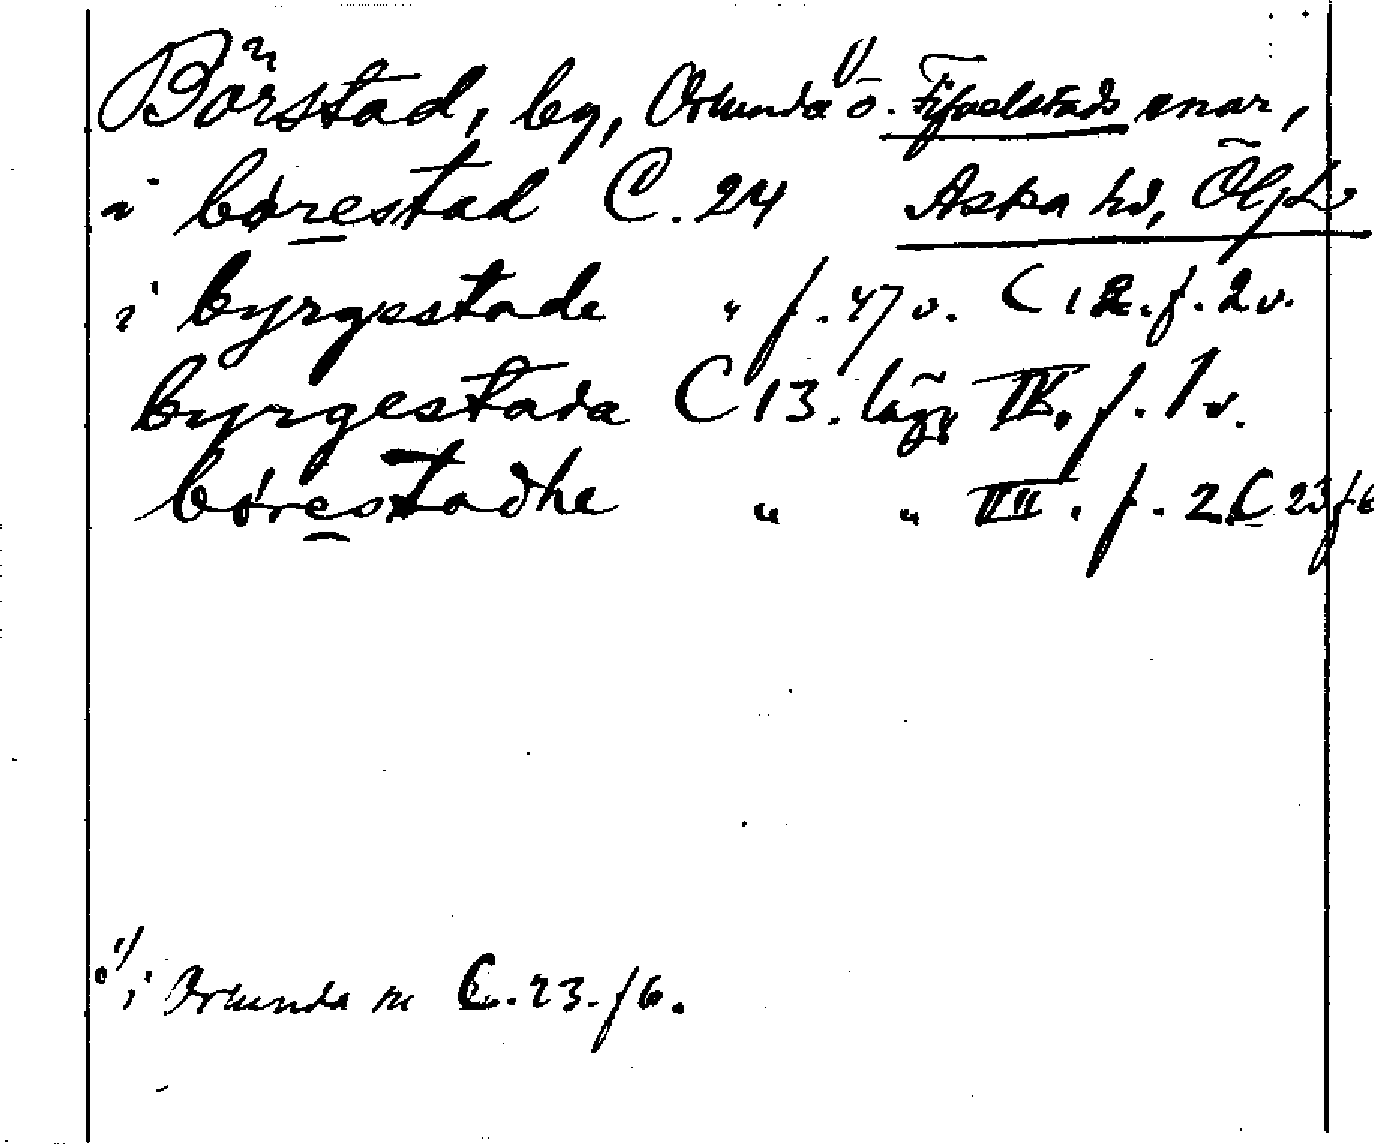 Börstad, by, Orlunda ¹) o. Fifvelstads snar,
i børestad C. 24 Aska hd, Ög. L.
i byrgestade " f. 47 v. C 12. f. 2 v.
byrgestada C 13. lägg IV. f. 1 v.
børestadhe " " III. f. 2. C 23 f 6
¹) i Orlunda sn C. 23. f 6.